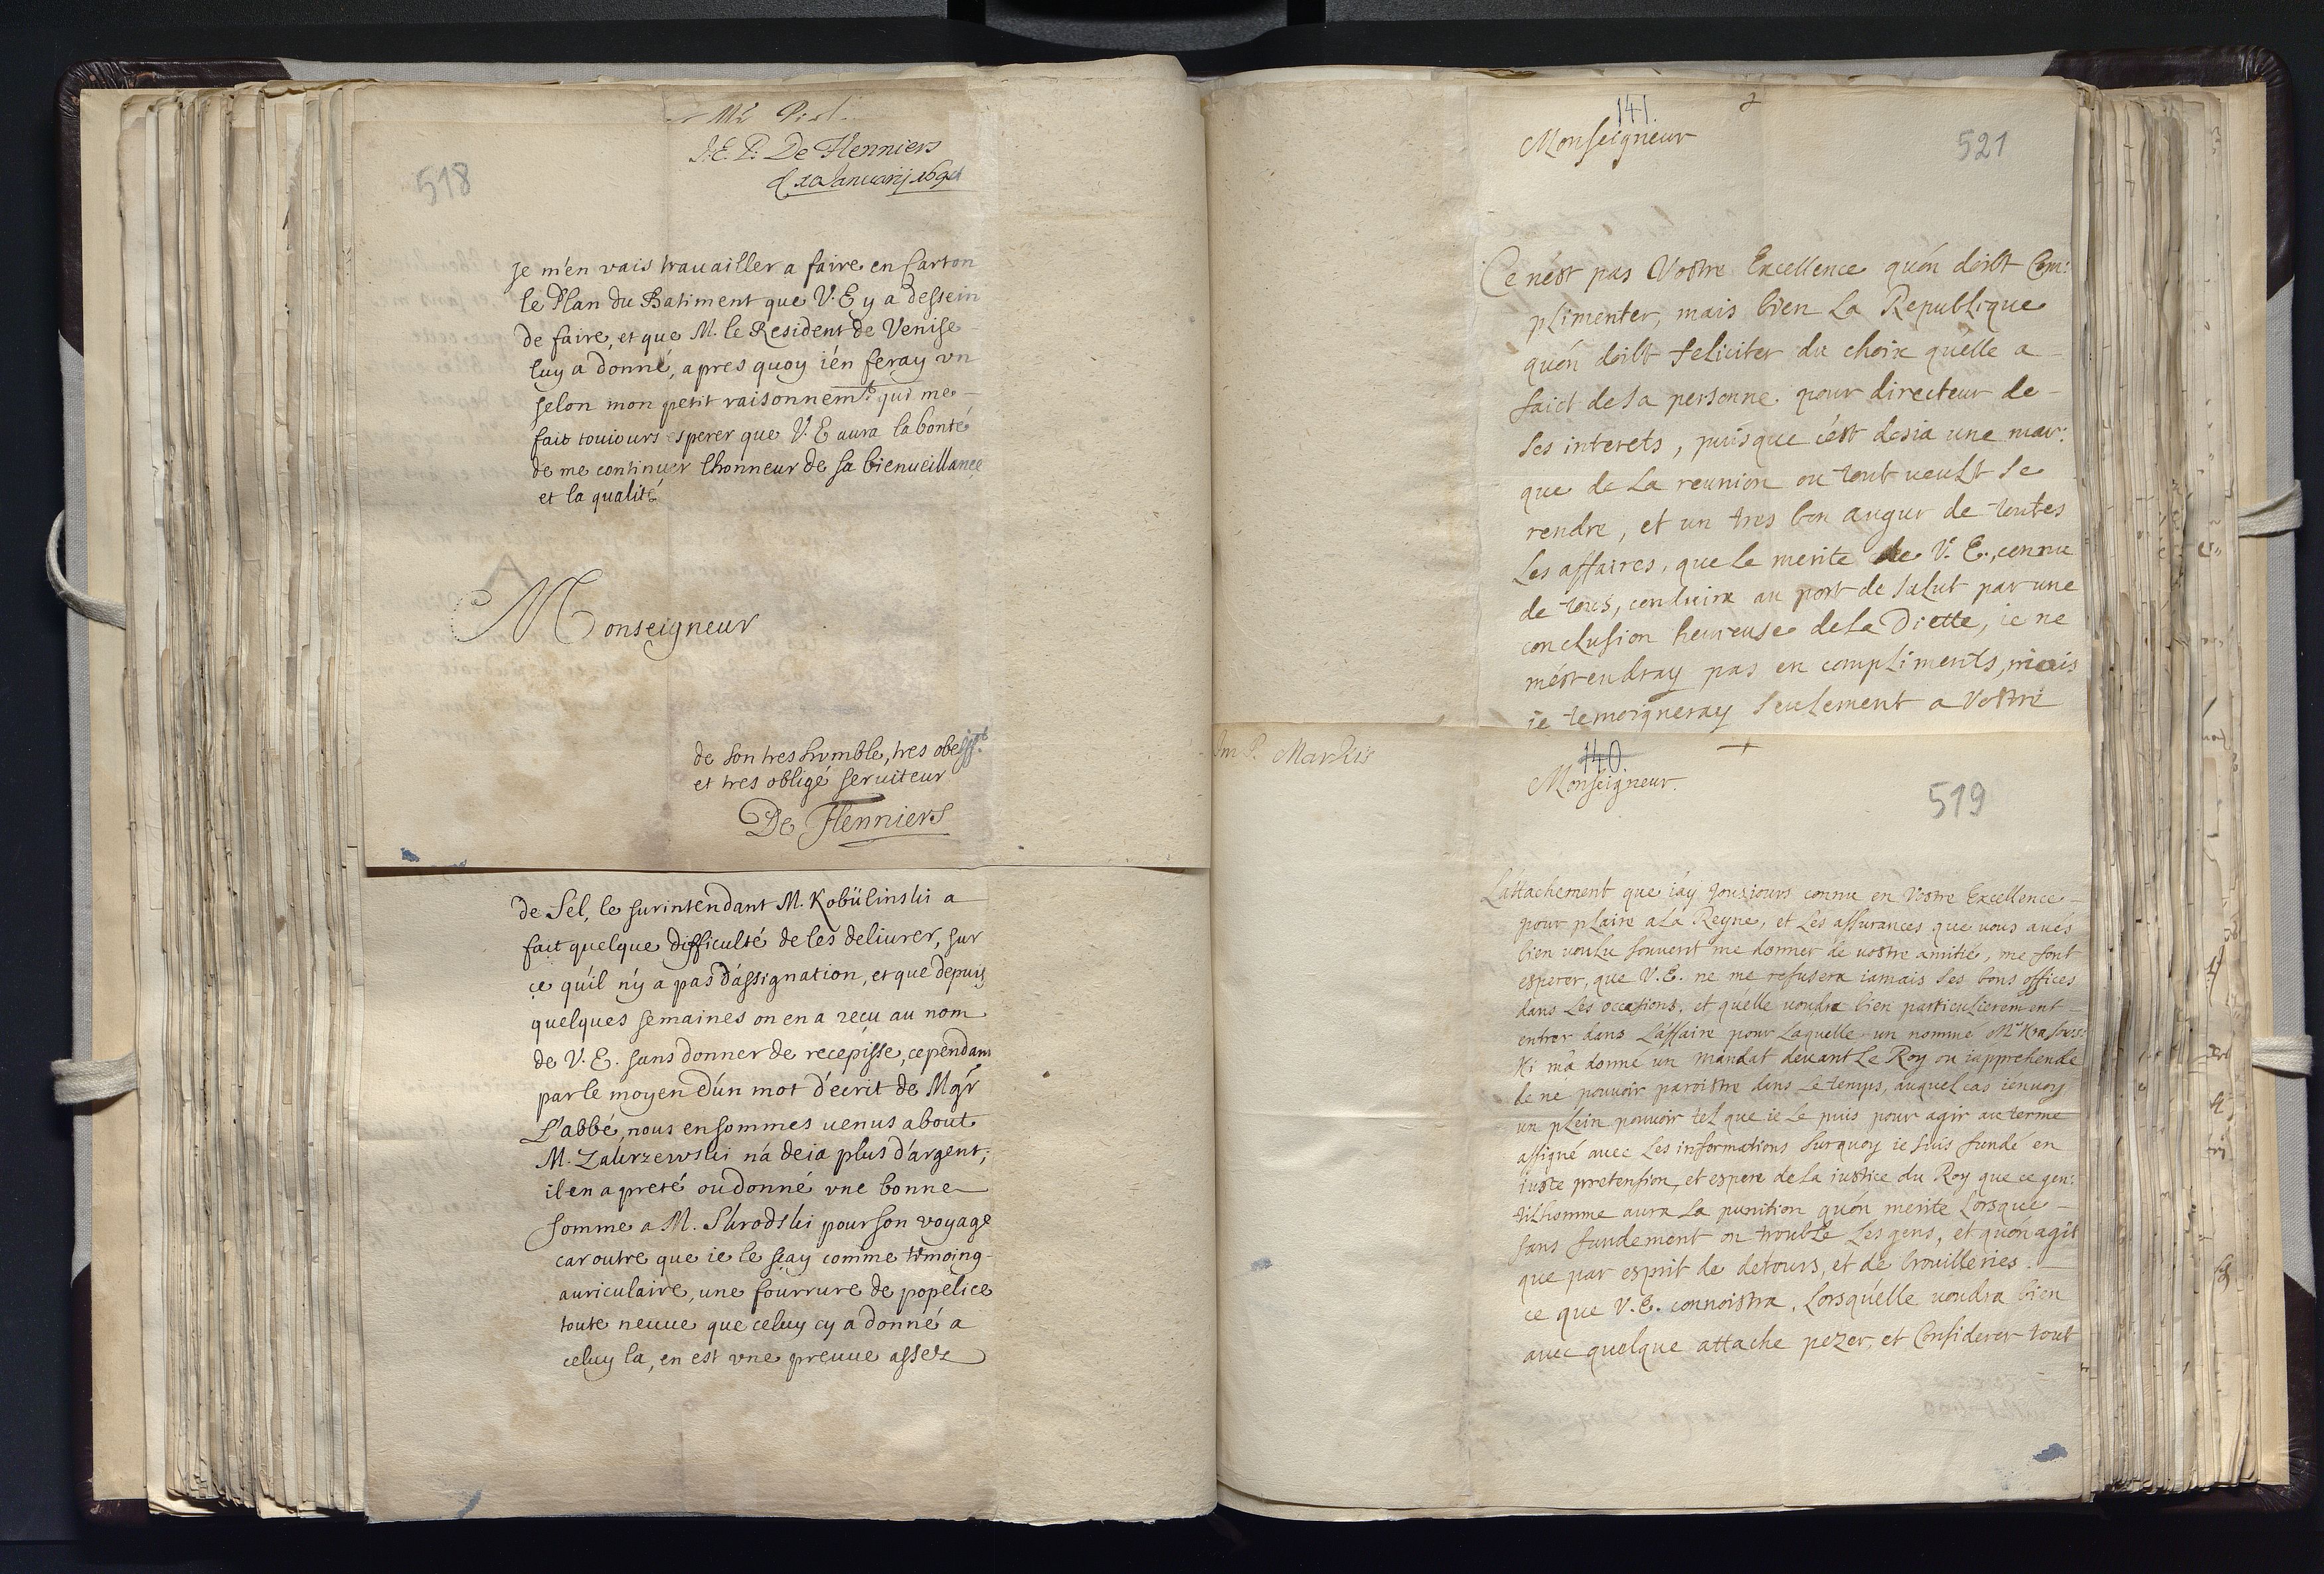 518
J. E. P. De Flenniers
Je m'en vais trauailler a faire en Carton
le Plan du Batiment que V. E y a dessein
de faire, et que M. le Resident de Venise
luy a donné, apres quoy i'en feray vn
selon mon petit raisonnem.t qui me
fait touiours esperer que V. E aura la bonté
de me continuer l'honneur de sa bienueillance
et la qualité
Monseigneur
de son tres humble, tres obeiss.t
et tres obligé seruiteur
De Flenniers
de Sel, le surintendant M. Kobülinski a
fait quelque difficulté de les deliurer, sur
ce qu'il n'y a pas d'assignation, et que depuis
quelques semaines on en a reçu au nom
de V. E. sans donner de recepisse, cependant
par le moyen d'un mot d'écrit de Mg.r
L'abbé, nous en sommes uenus a bout
M. Zakrzewski n'a deia plus d'argent;
il en a preté ou donné vne bonne
somme a M. Skrodski pour son voyage
car outre que ie le sçay comme témoing
auriculaire, une fourrure de popelice
toute neuue que celuy cy a donné a
celuy la, en est vne preuue assez
141.
Monseigneur
521
Ce n'est pas Vostre Excellence qu'on doibt Com:
plimenter, mais bien La Republique
qu'on doibt feliciter du choix qu'elle a
faict de sa personne pour directeur de
ses interets, puisque c'est desia une mar:
que de La reunion ou tout ueult se
rendre, et un tres bon augur de toutes
Les affaires, que Le merite de V. E., connu
de tous, conduira au port de salut par une
conclusion heureuse de La Diette, ie ne
m'estendray pas en compliments, mais
ie temoigneray seulement a Vostre
Im P. Markis
140.
Monseigneur.
519
L'attachement que i'ay tousiours connu en Vostre Excellence
pour pLaire a La Reyne, et Les assurances que uous aués
bien uoulu souuent me donner de uostre amitié, me font
esperer, que V. E. ne me refusera iamais ses bons offices
dans Les occasions, et qu'elle uoudra bien particulierement
entrer dans L'affaire pour Laquelle un nommé
Ki m'a donné un mandat deuant Le Roy ou i'apprehende
de ne pouuoir paroistre dans Le temps, auquel cas i'enuoy
un pLein pouuoir tel que ie Le puis pour agir au terme
assigné auec Les informations surquoy ie suis fundé en
iuste pretension, et espere de La iustice du Roy que ce gen:
tilhomme aura La punition qu'on merite Lorsque
sans fundement on troubLe Les gens, et qu'on agit
que par esprit de detours, et de brouilleries
ce que V. E. connoistra, Lorsqu'elle uoudra bien
auec quelque attache pezer, et Considerer tout